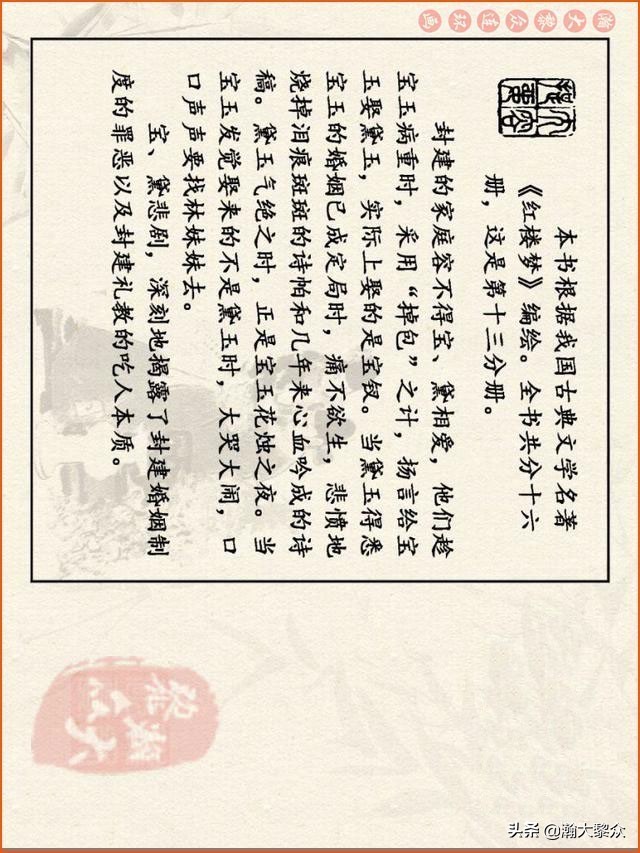 瀚大黎众连环画
内容提要
本书根据我国古典文学名著
《红楼梦》编绘。全书共分十六
册，这是第十三分册。
封建的家庭容不得宝、黛相爱，他们趁
宝玉病重时，采用“掉包”之计，扬言给宝
玉娶黛玉，实际上娶的是宝钗。当黛玉得悉
宝玉的婚姻已成定局时，痛不欲生，悲愤地
烧掉泪痕斑斑的诗帕和几年来心血吟成的诗
稿。黛玉气绝之时，正是宝玉花烛之夜。当
宝玉发觉娶来的不是黛玉时，大哭大闹，口
口声声要找林妹妹去。
宝、黛悲剧，深刻地揭露了封建婚姻制
度的罪恶以及封建礼教的吃人本质。
瀚大黎众
头条 @瀚大黎众